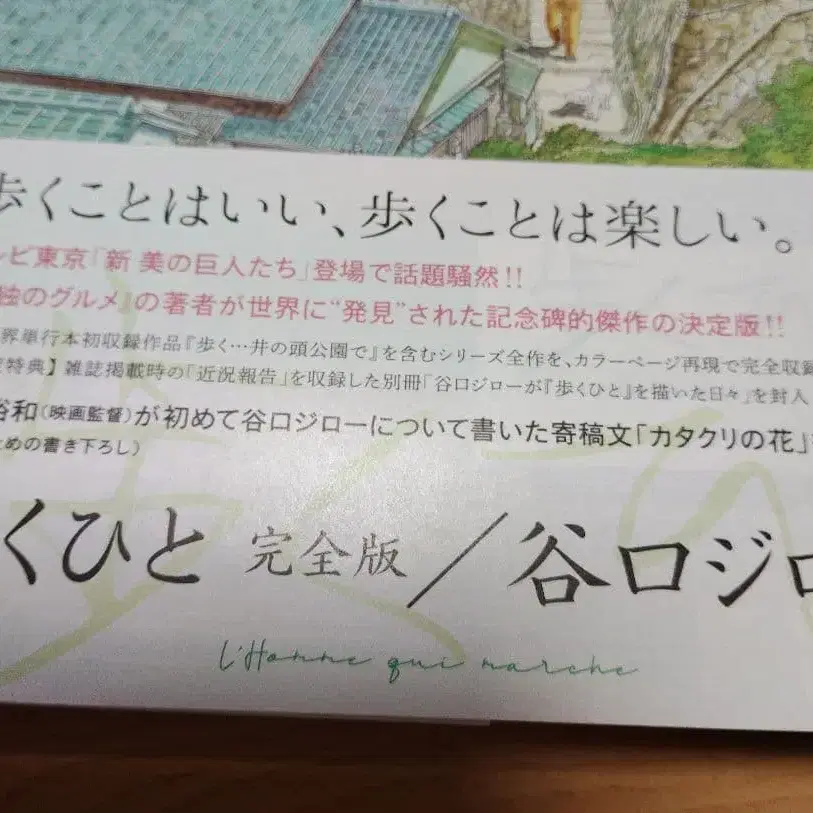 歩くことはいい、歩くことは楽しい。
レビ東京「新 美の巨人たち」登場で話題騒然!!
独のグルメ』の著者が世界に“発見”された記念碑的傑作の決定版!!
界単行本初収録作品『歩く…井の頭公園で』を含むシリーズ全作を、カラーページ再現で完全収録
特典】雑誌掲載時の「近況報告」を収録した別冊「谷口ジローが『歩くひと』を描いた日々」を封入
裕和(映画監督)が初めて谷口ジローについて書いた寄稿文「カタクリの花」
ための書き下ろし)
くひと 完全版/谷口ジロ
L'Homme qui marche